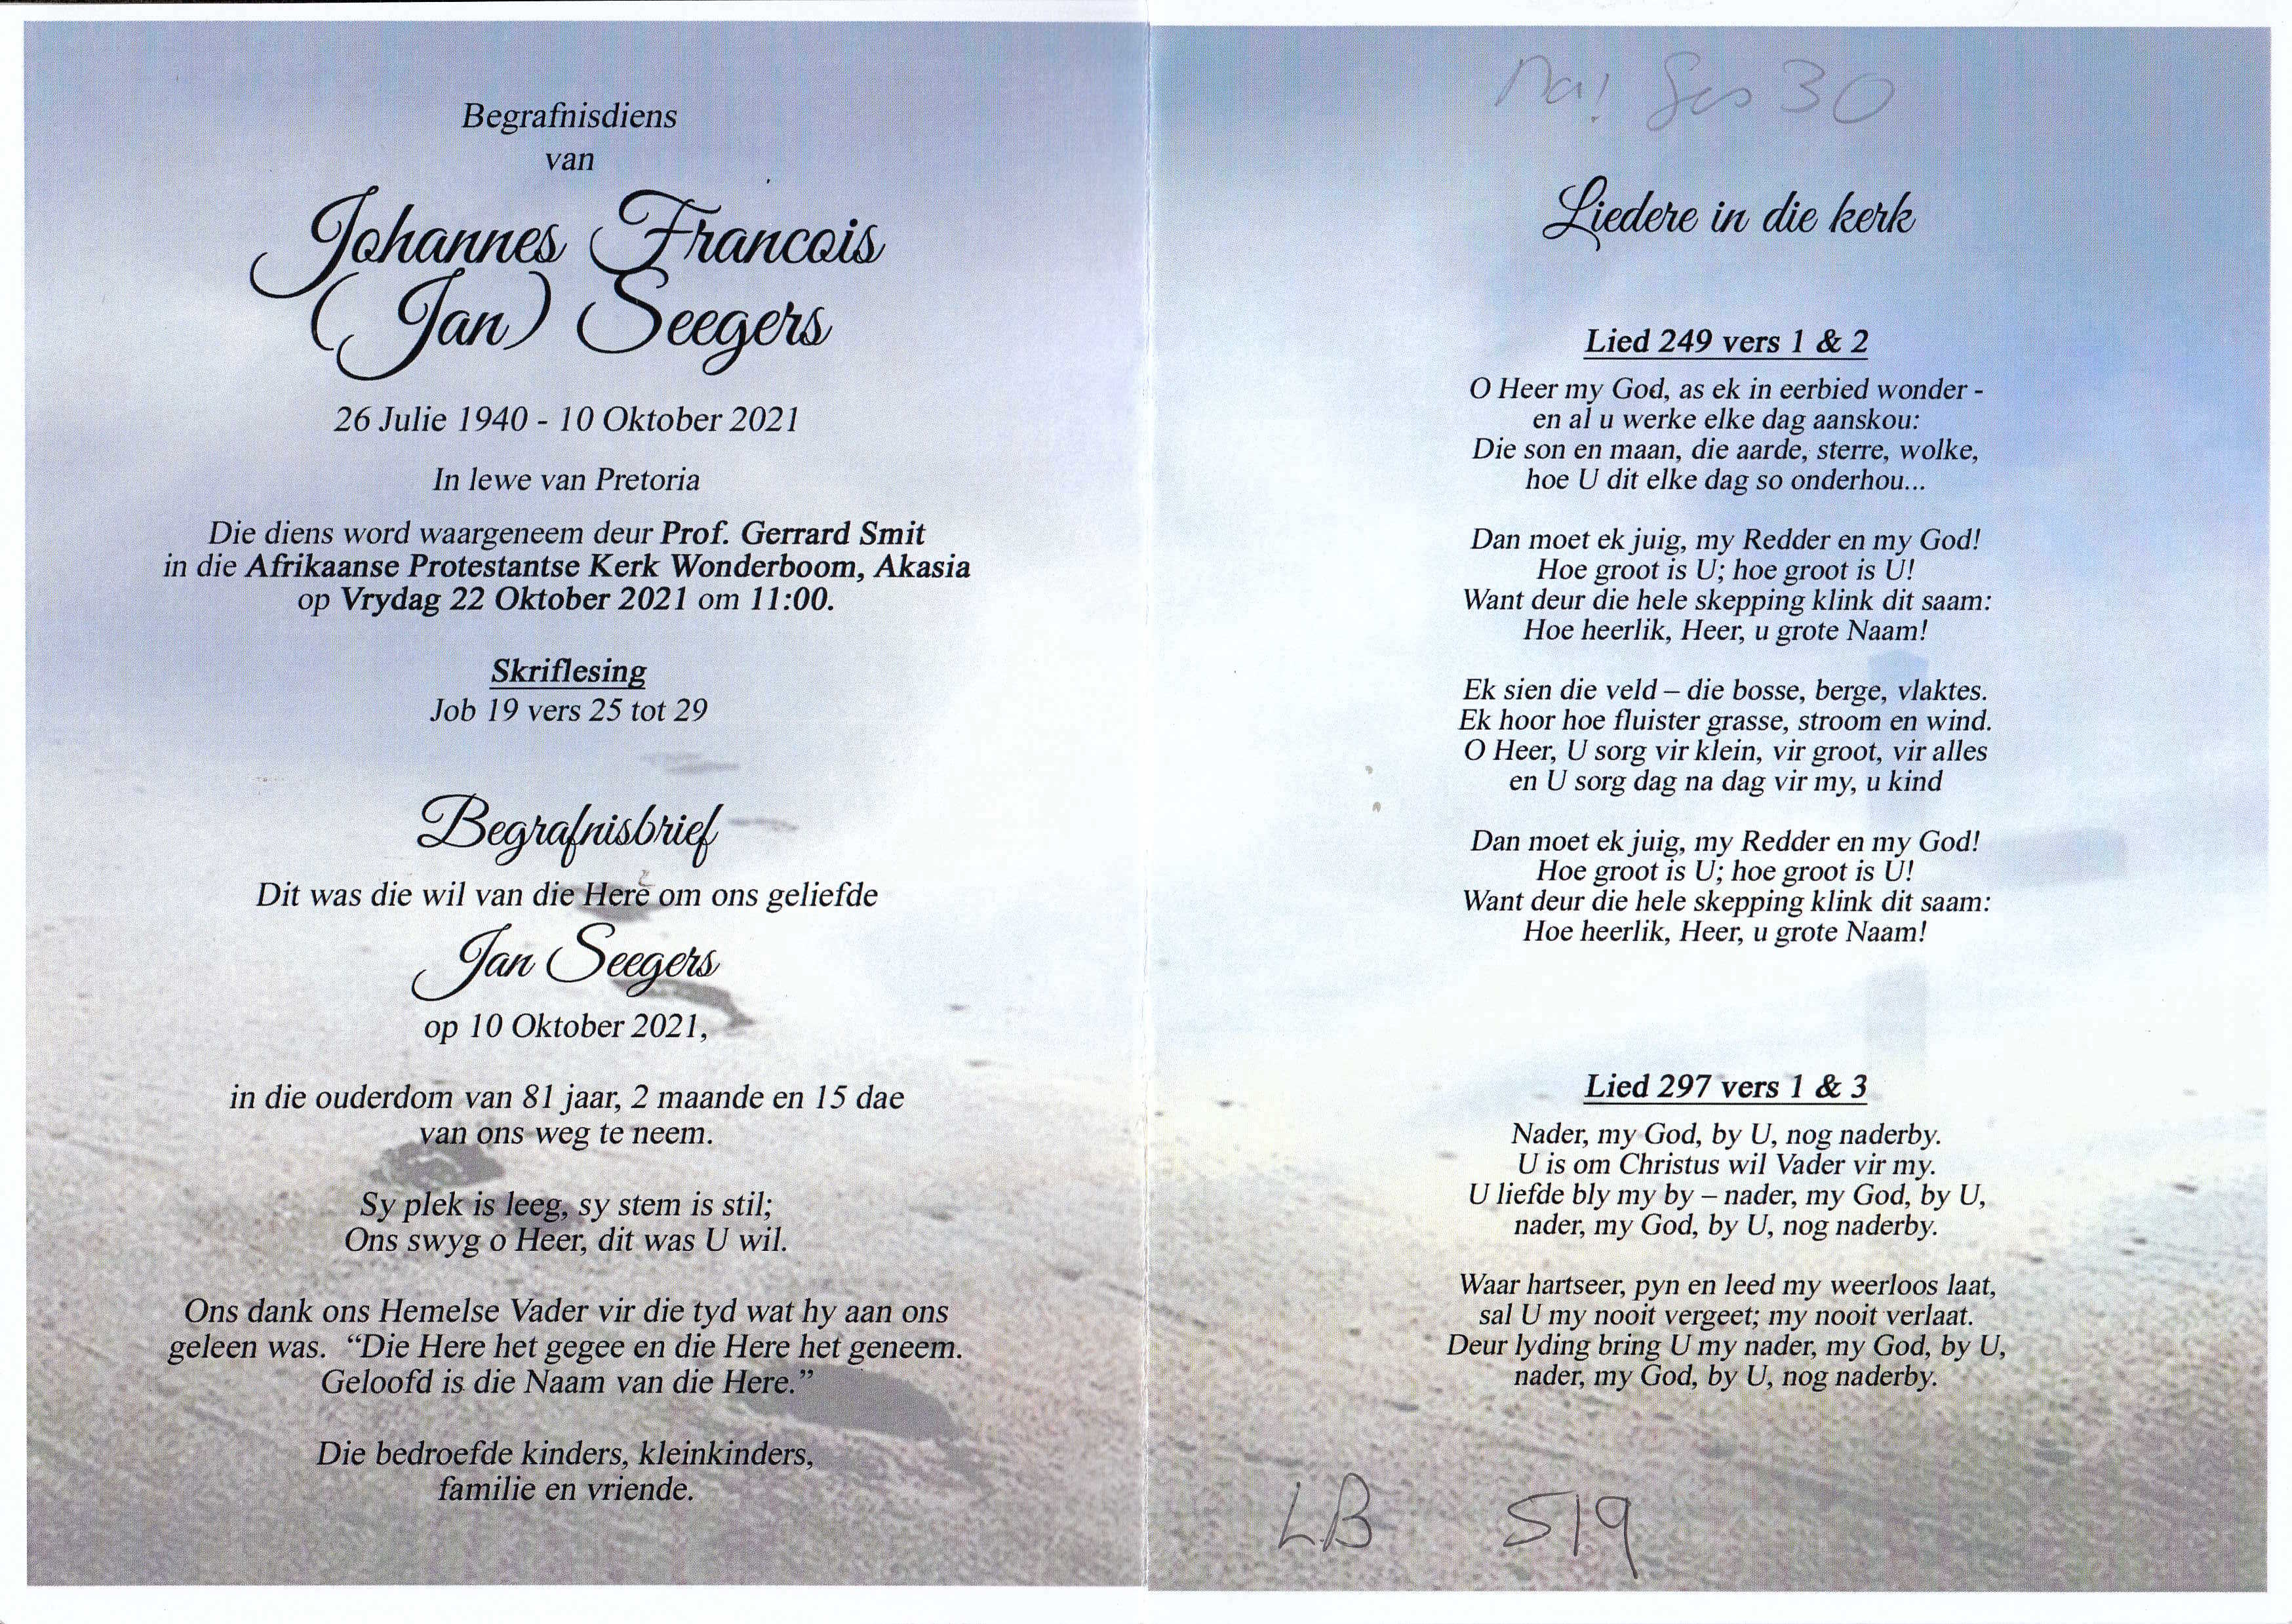 Begrafnisdiens
van
Johannes Francois
(Jan) Seegers
26 Julie 1940 - 10 Oktober 2021
In lewe van Pretoria
Die diens word waargeneem deur Prof. Gerrard Smit
in die Afrikaanse Protestantse Kerk Wonderboom, Akasia
op Vrydag 22 Oktober 2021 om 11:00.
Skriflesing
Job 19 vers 25 tot 29
Begrafnisbrief
Dit was die wil van die Here om ons geliefde
Jan Seegers
op 10 Oktober 2021,
in die ouderdom van 81 jaar, 2 maande en 15 dae
van ons weg te neem.
Sy plek is leeg, sy stem is stil;
Ons swyg o Heer, dit was U wil.
Ons dank ons Hemelse Vader vir die tyd wat hy aan ons
geleen was. “Die Here het gegee en die Here het geneem.
Geloofd is die Naam van die Here.”
Die bedroefde kinders, kleinkinders,
familie en vriende.
30
Liedere in die kerk
Lied 249 vers 1 & 2
O Heer my God, as ek in eerbied wonder -
en al u werke elke dag aanskou:
Die son en maan, die aarde, sterre, wolke,
hoe U dit elke dag so onderhou...
Dan moet ek juig, my Redder en my God!
Hoe groot is U; hoe groot is U!
Want deur die hele skepping klink dit saam:
Hoe heerlik, Heer, u grote Naam!
Ek sien die veld – die bosse, berge, vlaktes.
Ek hoor hoe fluister grasse, stroom en wind.
O Heer, U sorg vir klein, vir groot, vir alles
en U sorg dag na dag vir my, u kind
Dan moet ek juig, my Redder en my God!
Hoe groot is U; hoe groot is U!
Want deur die hele skepping klink dit saam:
Hoe heerlik, Heer, u grote Naam!
Lied 297 vers 1 & 3
Nader, my God, by U, nog naderby.
U is om Christus wil Vader vir my.
U liefde bly my by – nader, my God, by U,
nader, my God, by U, nog naderby.
Waar hartseer, pyn en leed my weerloos laat,
sal U my nooit vergeet; my nooit verlaat.
Deur lyding bring U my nader, my God, by U,
nader, my God, by U, nog naderby.
LB 519